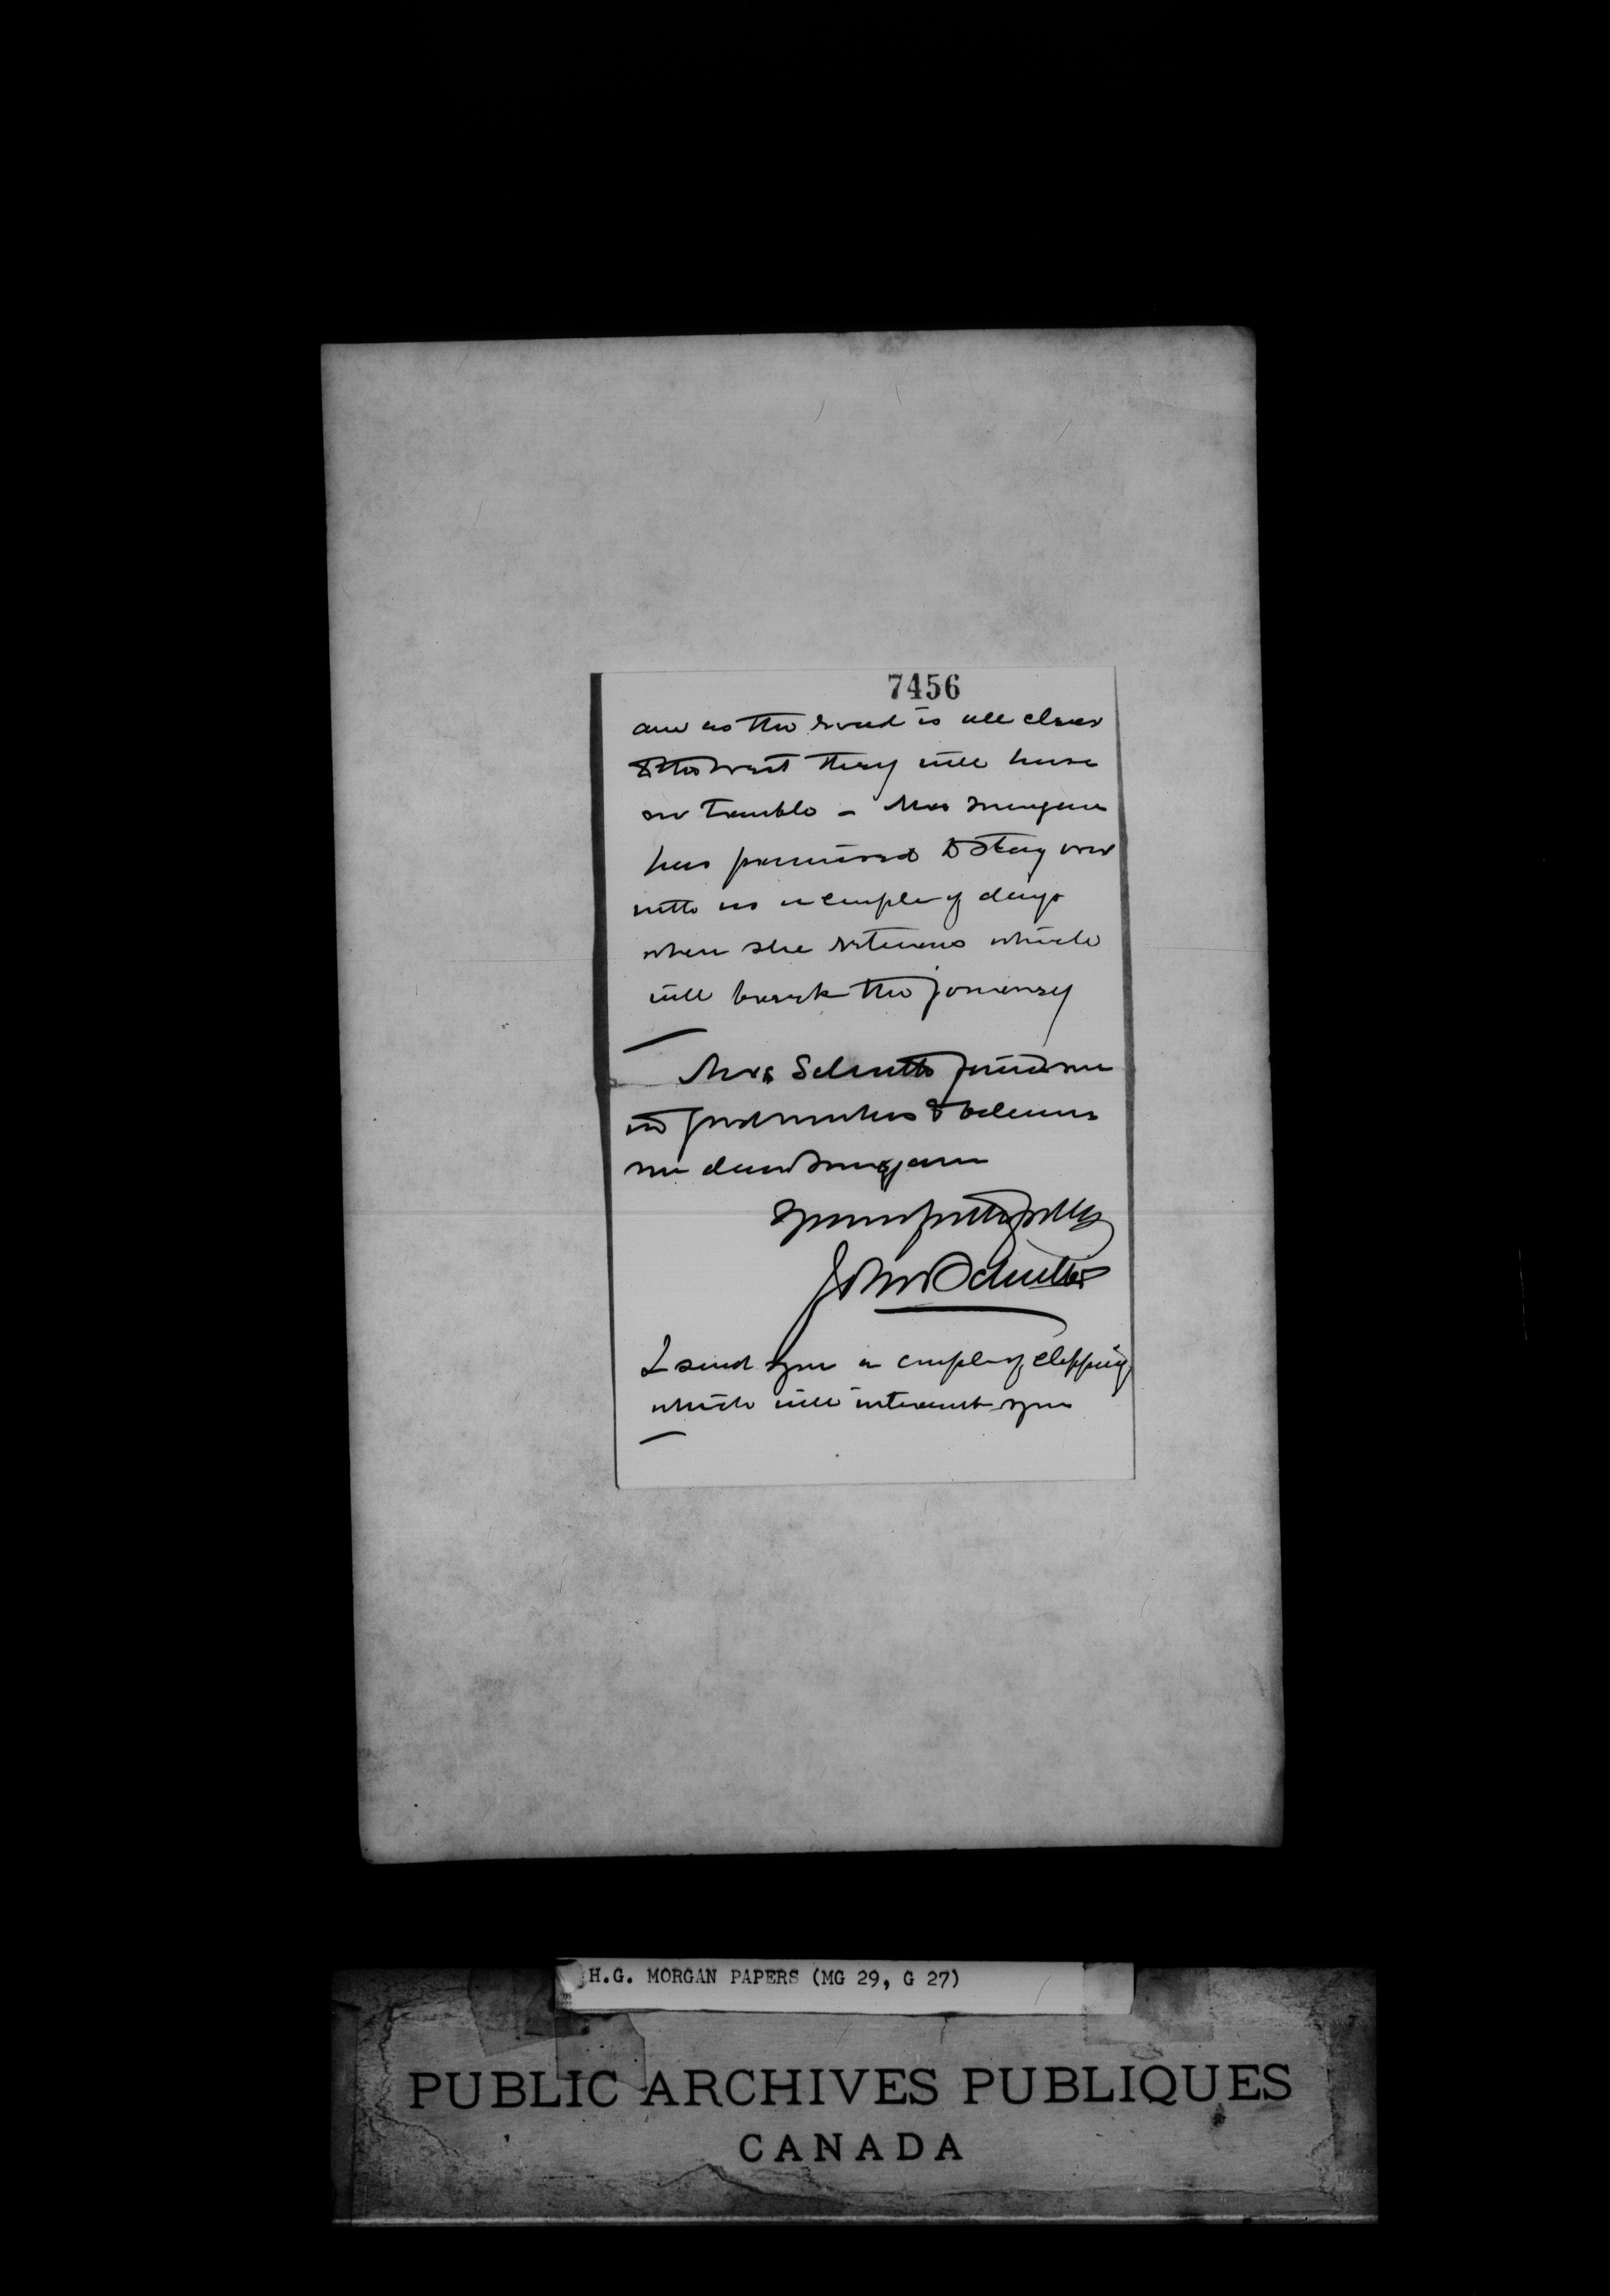 7456
and as the road is all clear
to the west they will have
no trouble - Mrs Morgan
has promised to stay over
with us a couple of days
when she returns which
will break the journey
Mrs Schultz joins me
in good wishes & believe
me dear Morgan
Yours faithfully
John Schultz
I send you a couple of clippings
which will interest you
H.G. MORGAN PAPERS (MG 29, G 27)
PUBLIC ARCHIVES PUBLIQUES
CANADA